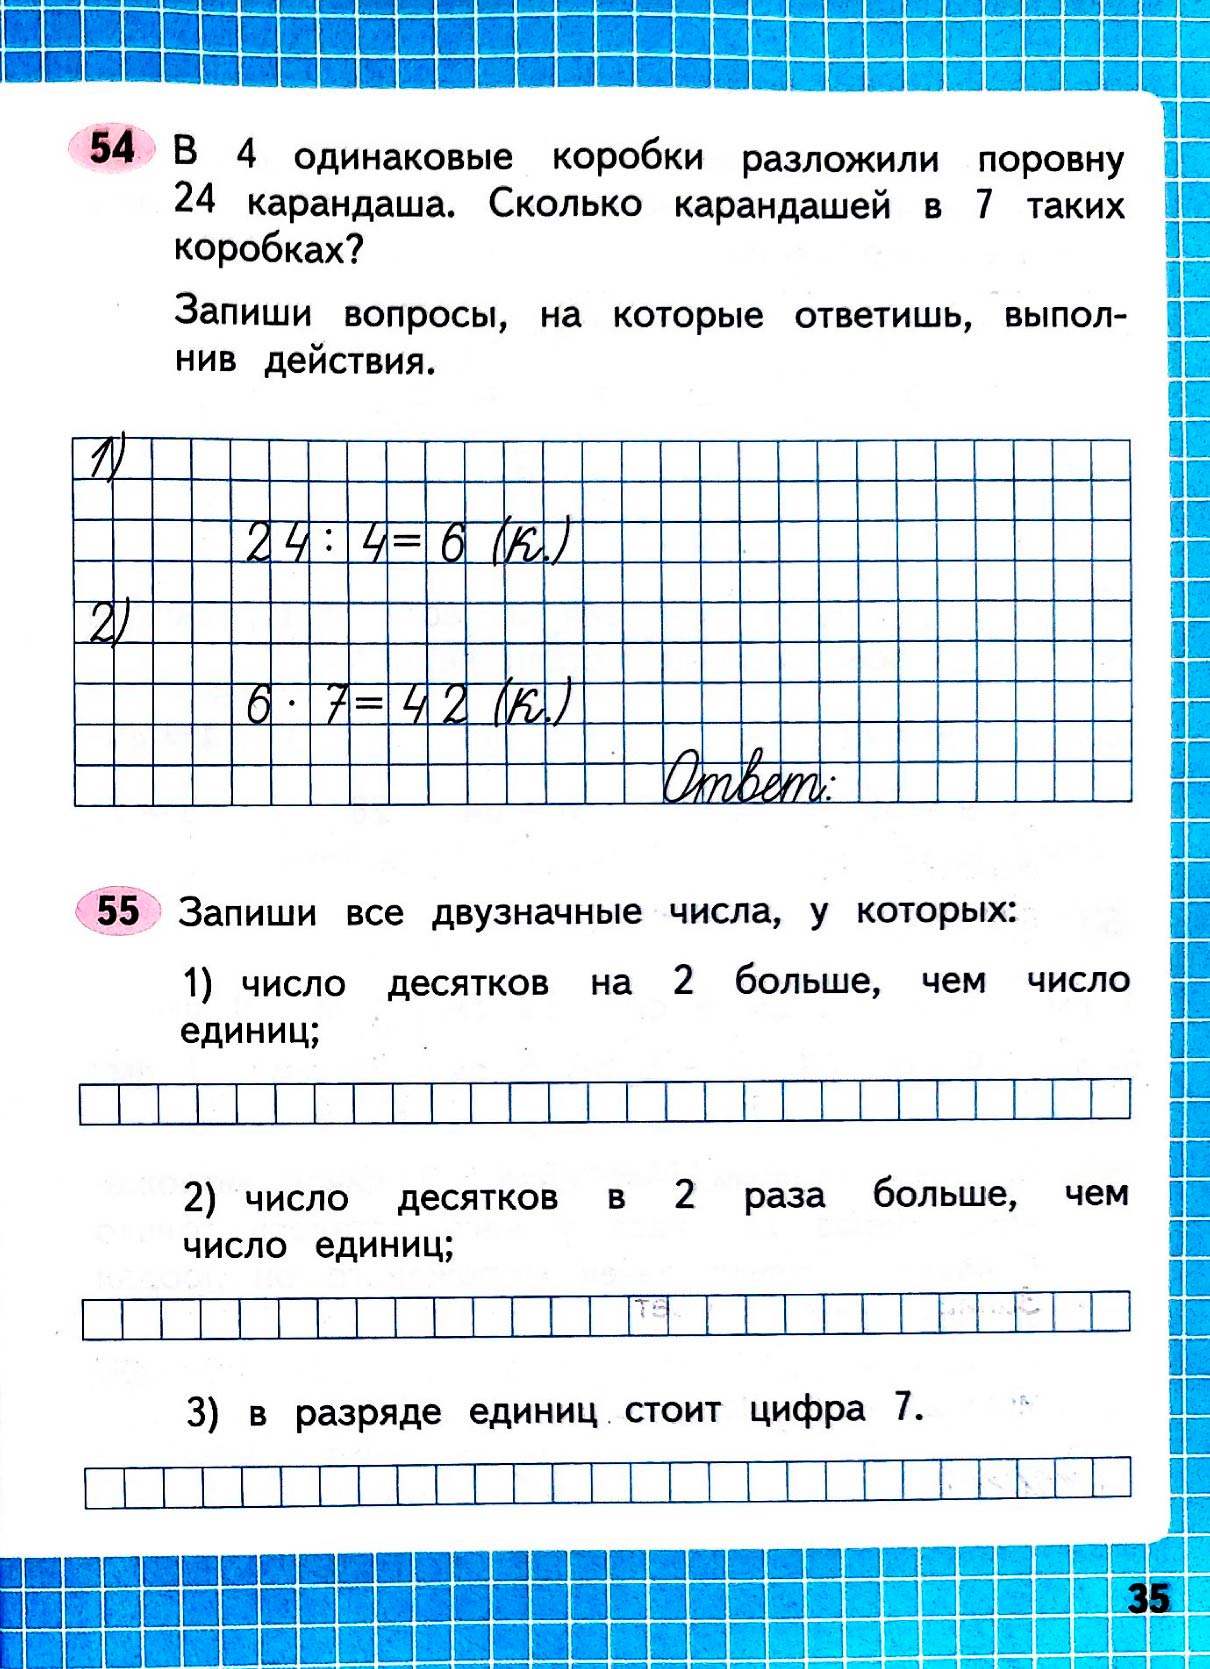 54 В 4 одинаковые коробки разложили поровну
24 карандаша. Сколько карандашей в 7 таких
коробках?
Запиши вопросы, на которые ответишь, выпол-
нив действия.
1)
24 : 4 = 6 (к.)
2)
6 · 7 = 42 (к.)
Ответ:
55 Запиши все двузначные числа, у которых:
1) число десятков на 2 больше, чем число
единиц;
2) число десятков в 2 раза больше, чем
число единиц;
3) в разряде единиц стоит цифра 7.
35